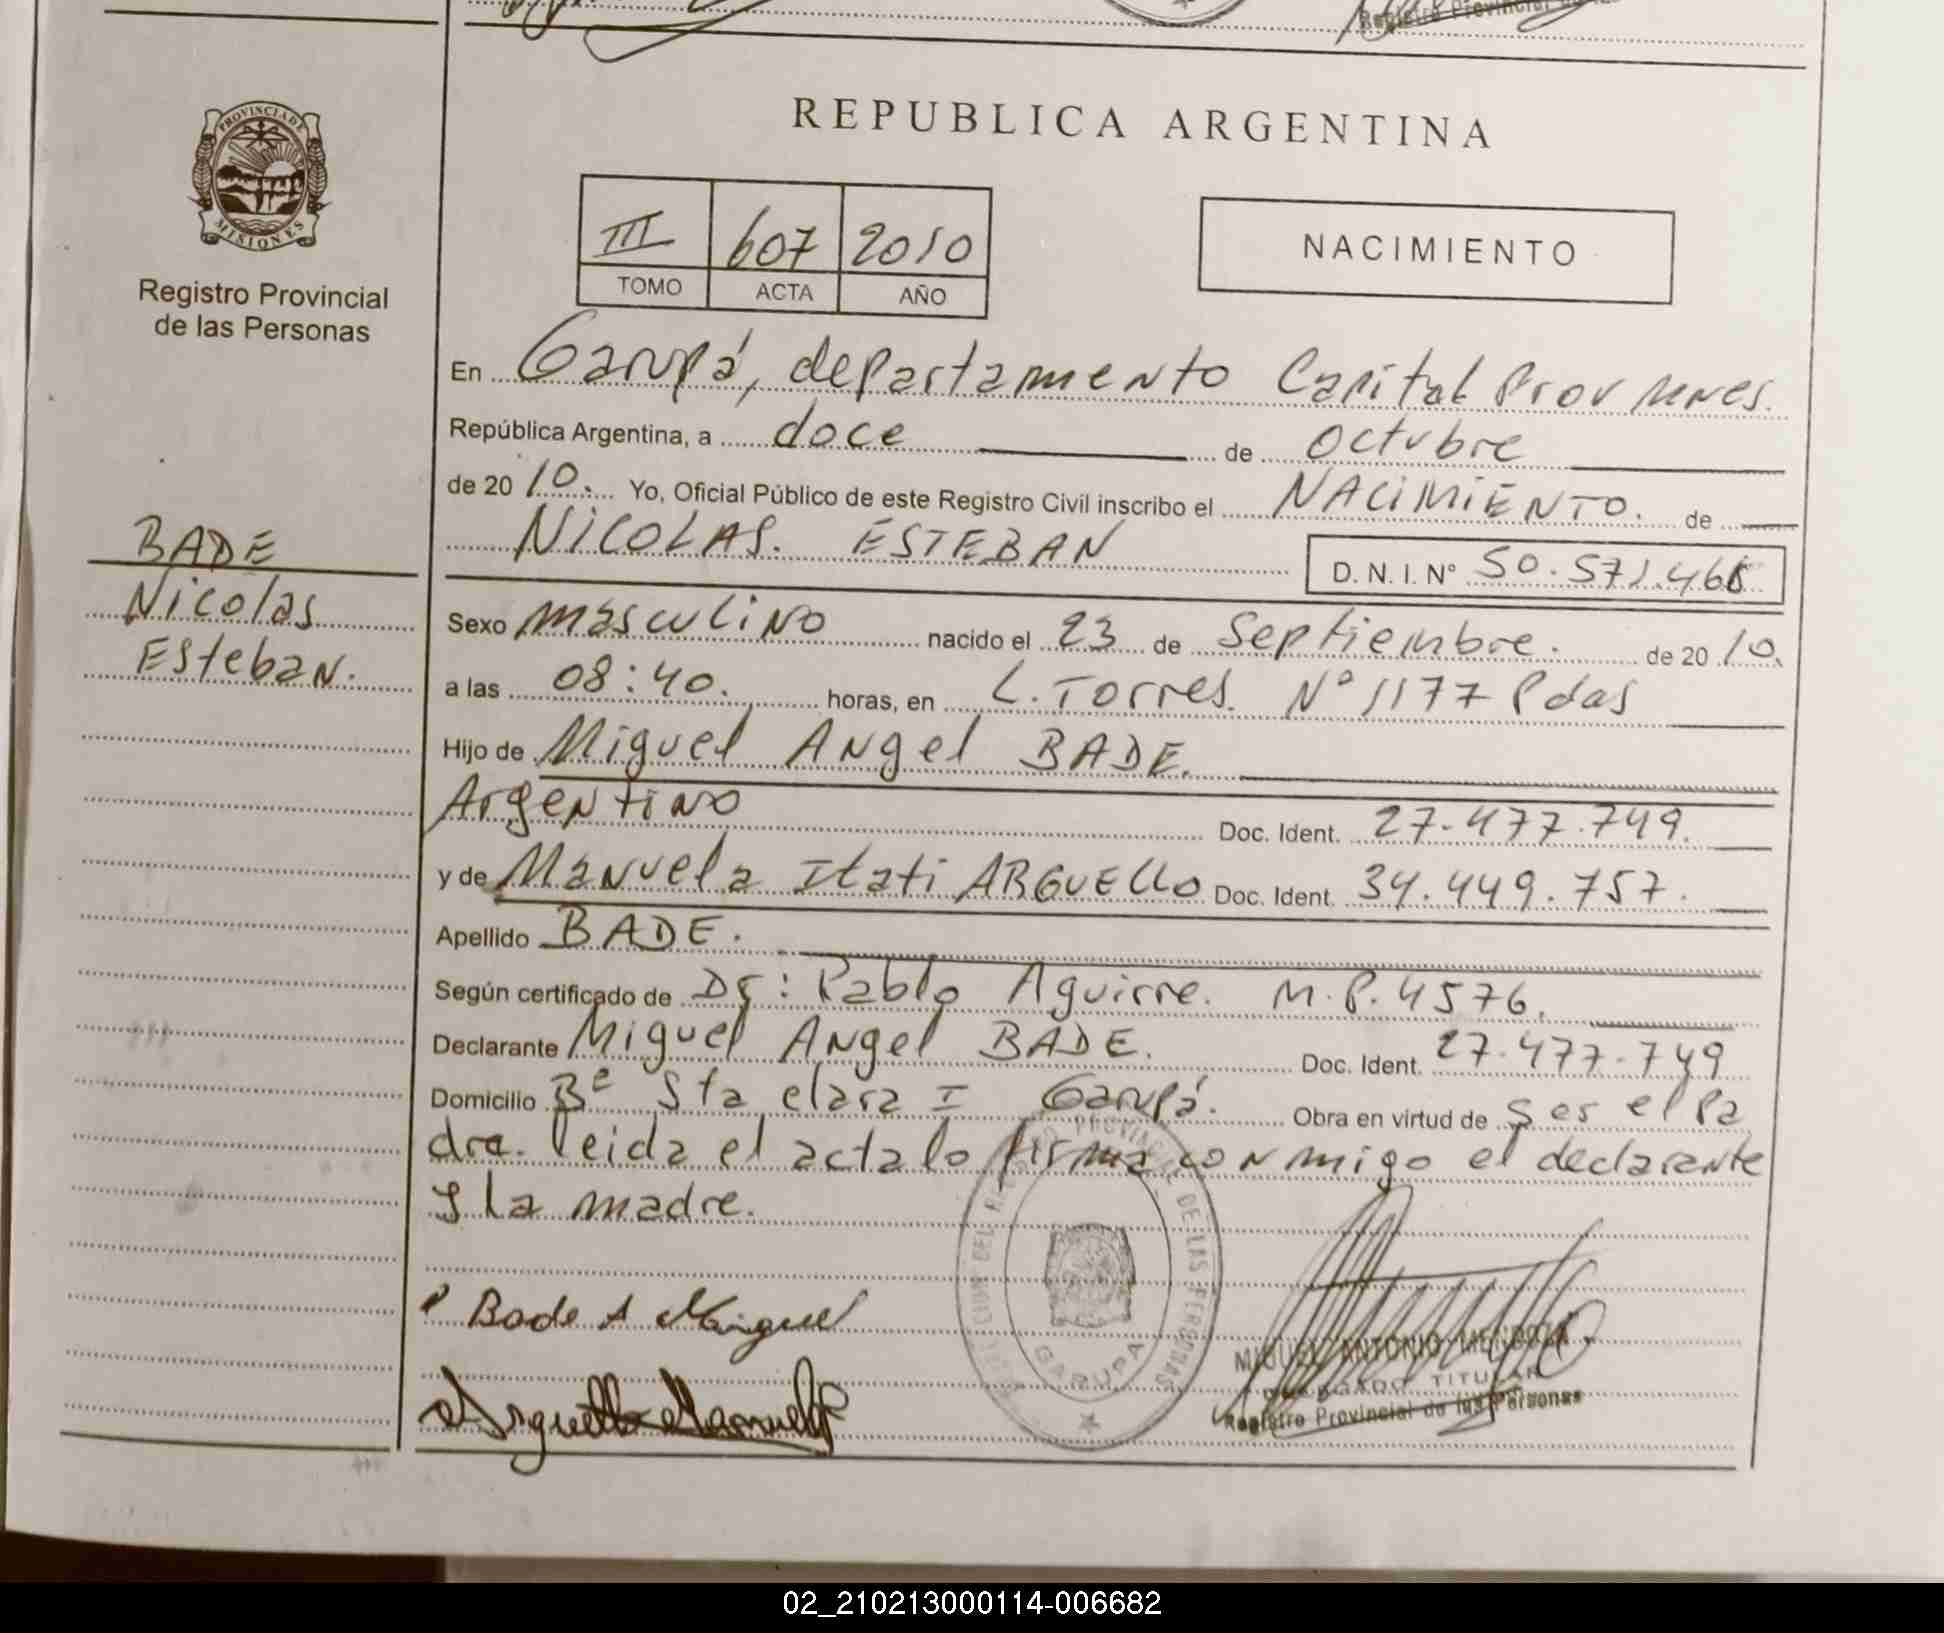 PROVINCIA DE
MISIONES
Registro Provincial
de las Personas
BADE
Nicolas
Esteban.
REPUBLICA ARGENTINA
III 607 2010
TOMO ACTA AÑO
NACIMIENTO
En Garupá, departamento Capital Prov
República Argentina, a doce de octubre
de 2010. Yo, Oficial Público de este Registro Civil inscribo el NACIMIENTO. de
NICOLAS. ESTEBAN
D. N. I. Nº 50.571.468
Sexo masculino nacido el 23 de Septiembre. de 2010.
a las 08:40. horas, en L. Torres. Nº 1177 Pdas
Hijo de Miguel Angel BADE.
Argentino Doc. Ident. 27.477.749.
y de Manuela Itati ARGUELLO Doc. Ident. 34.449.757.
Apellido BADE.
Según certificado de Dr: Pablo Aguirre. M.P. 4576.
Declarante Miguel Angel BADE. Doc. Ident. 27.477.749
Domicilio Bº Sta clara I Garupá. Obra en virtud de Ser el Pa
dre. leida el acta lo firma conmigo el declarante
y la madre.
Bade A Miguel
Arguello Manuela
GARUPA
MIGUEL ANTONIO MENDOZA
DELEGADO TITULAR
Registro Provincial de las Personas
02_210213000114-006682